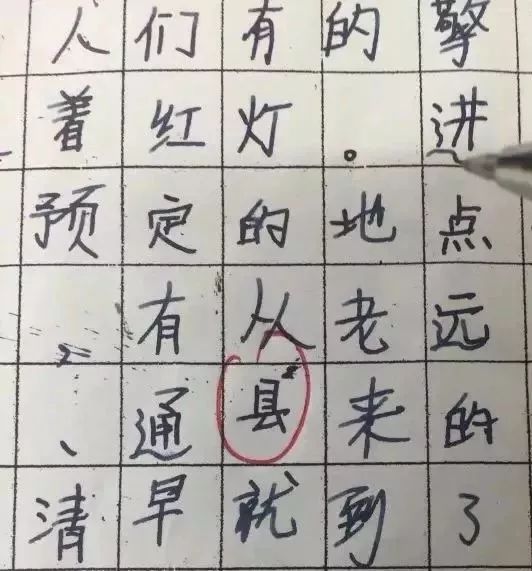 人们有的擎
着红灯。进
预定的地点
，有从老远
、通县来的
清早就到了